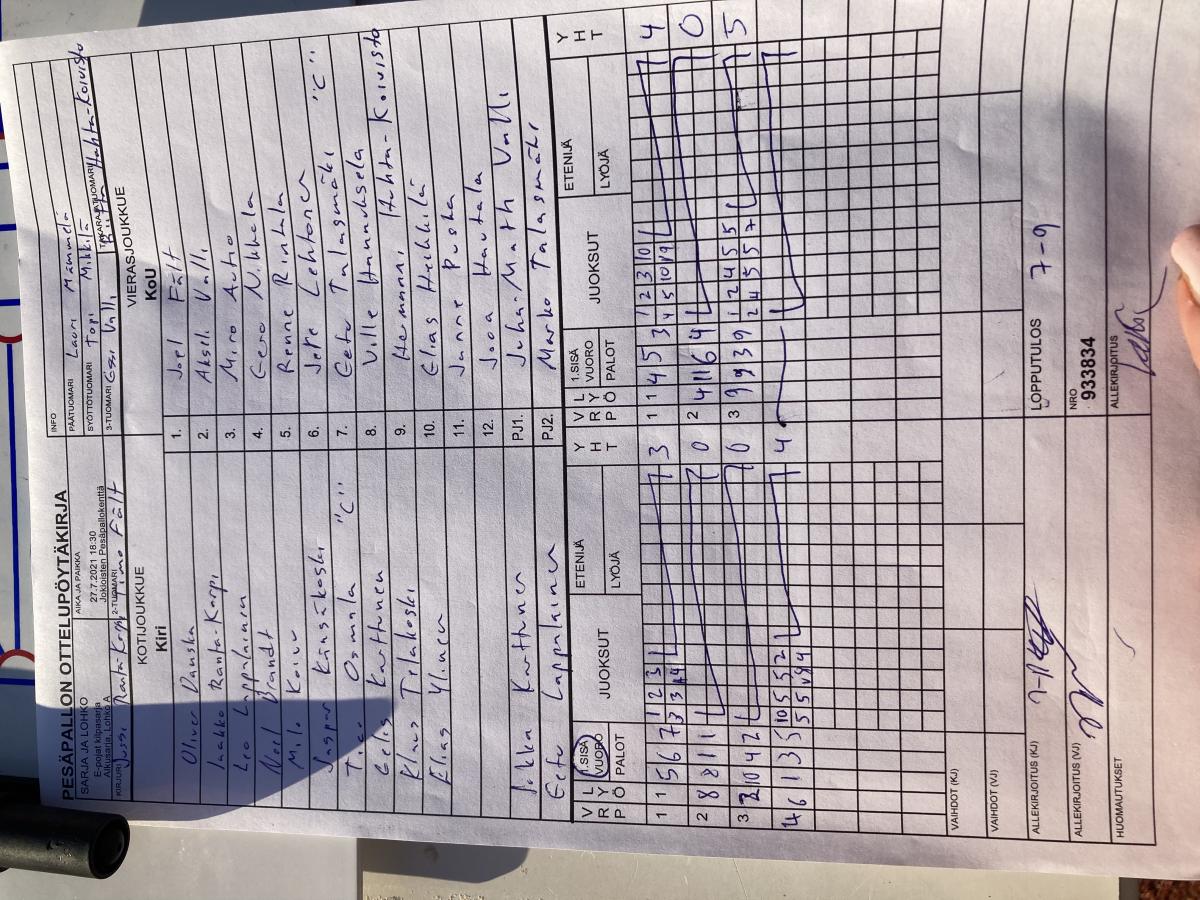 PESÄPALLON OTTELUPÖYTÄKIRJA
SARJA JA LOHKO
E-pojat kilpasarja
Alkusarja, Lohko A
AIKA JA PAIKKA
27.7.2021 18:30
Jokioisten Pesäpallokenttä
INFO
PÄÄTUOMARI Lauri Mämmelä
SYÖTTÖTUOMARI Topi Mikkilä
KIRJURI Jussi Ranta-Karpi
2-TUOMARI Timo Fält
3-TUOMARI Essi Valli
TAKARAJATUOMARI Riitta Huhta-Koivisto
KOTIJOUKKUE
Kiri
VIERASJOUKKUE
KoU
Oliver Danska 1. Joel Fält
Jaakko Ranta-Karpi 2. Akseli Valli
Leo Lappalainen 3. Miro Autio
Neil Brandt 4. Eero Nikkola
Milo Koivu 5. Renne Rintala
Jasper Känsäkoski 6. Jere Lehtonen "C"
Osmala "C" 7. Eetu Talasmäki
Eelis Karttunen 8. Ville Hannuksela
Klaus Tellakoski 9. Hermanni Huhta-Koivisto
Elias Ylinen 10. Elias Heikkilä
11. Janne Puska
12. Jooa Hautala
Jukka Karttunen PJ1. Juha-Matti Valli
Eetu Lappalainen PJ2. Marko Talasmäki
V R P L Y Ö 1.SISÄ VUORO PALOT JUOKSUT ETENIJÄ LYÖJÄ Y H T
V R P L Y Ö 1.SISÄ VUORO PALOT JUOKSUT ETENIJÄ LYÖJÄ Y H T
1 1 5 6 7 1 2 3 3 1 1 4 5 3 1 2 3 10 4
2 8 8 1 1 0 2 4 11 6 4 0
3 2 10 4 2 0 3 9 9 3 9 1 2 4 5 5 5
4 6 1 3 5 10 5 5 2 4
VAIHDOT (KJ)
VAIHDOT (VJ)
ALLEKIRJOITUS (KJ)
LOPPUTULOS 7-9
ALLEKIRJOITUS (VJ)
NRO
933834
HUOMAUTUKSET
ALLEKIRJOITUS